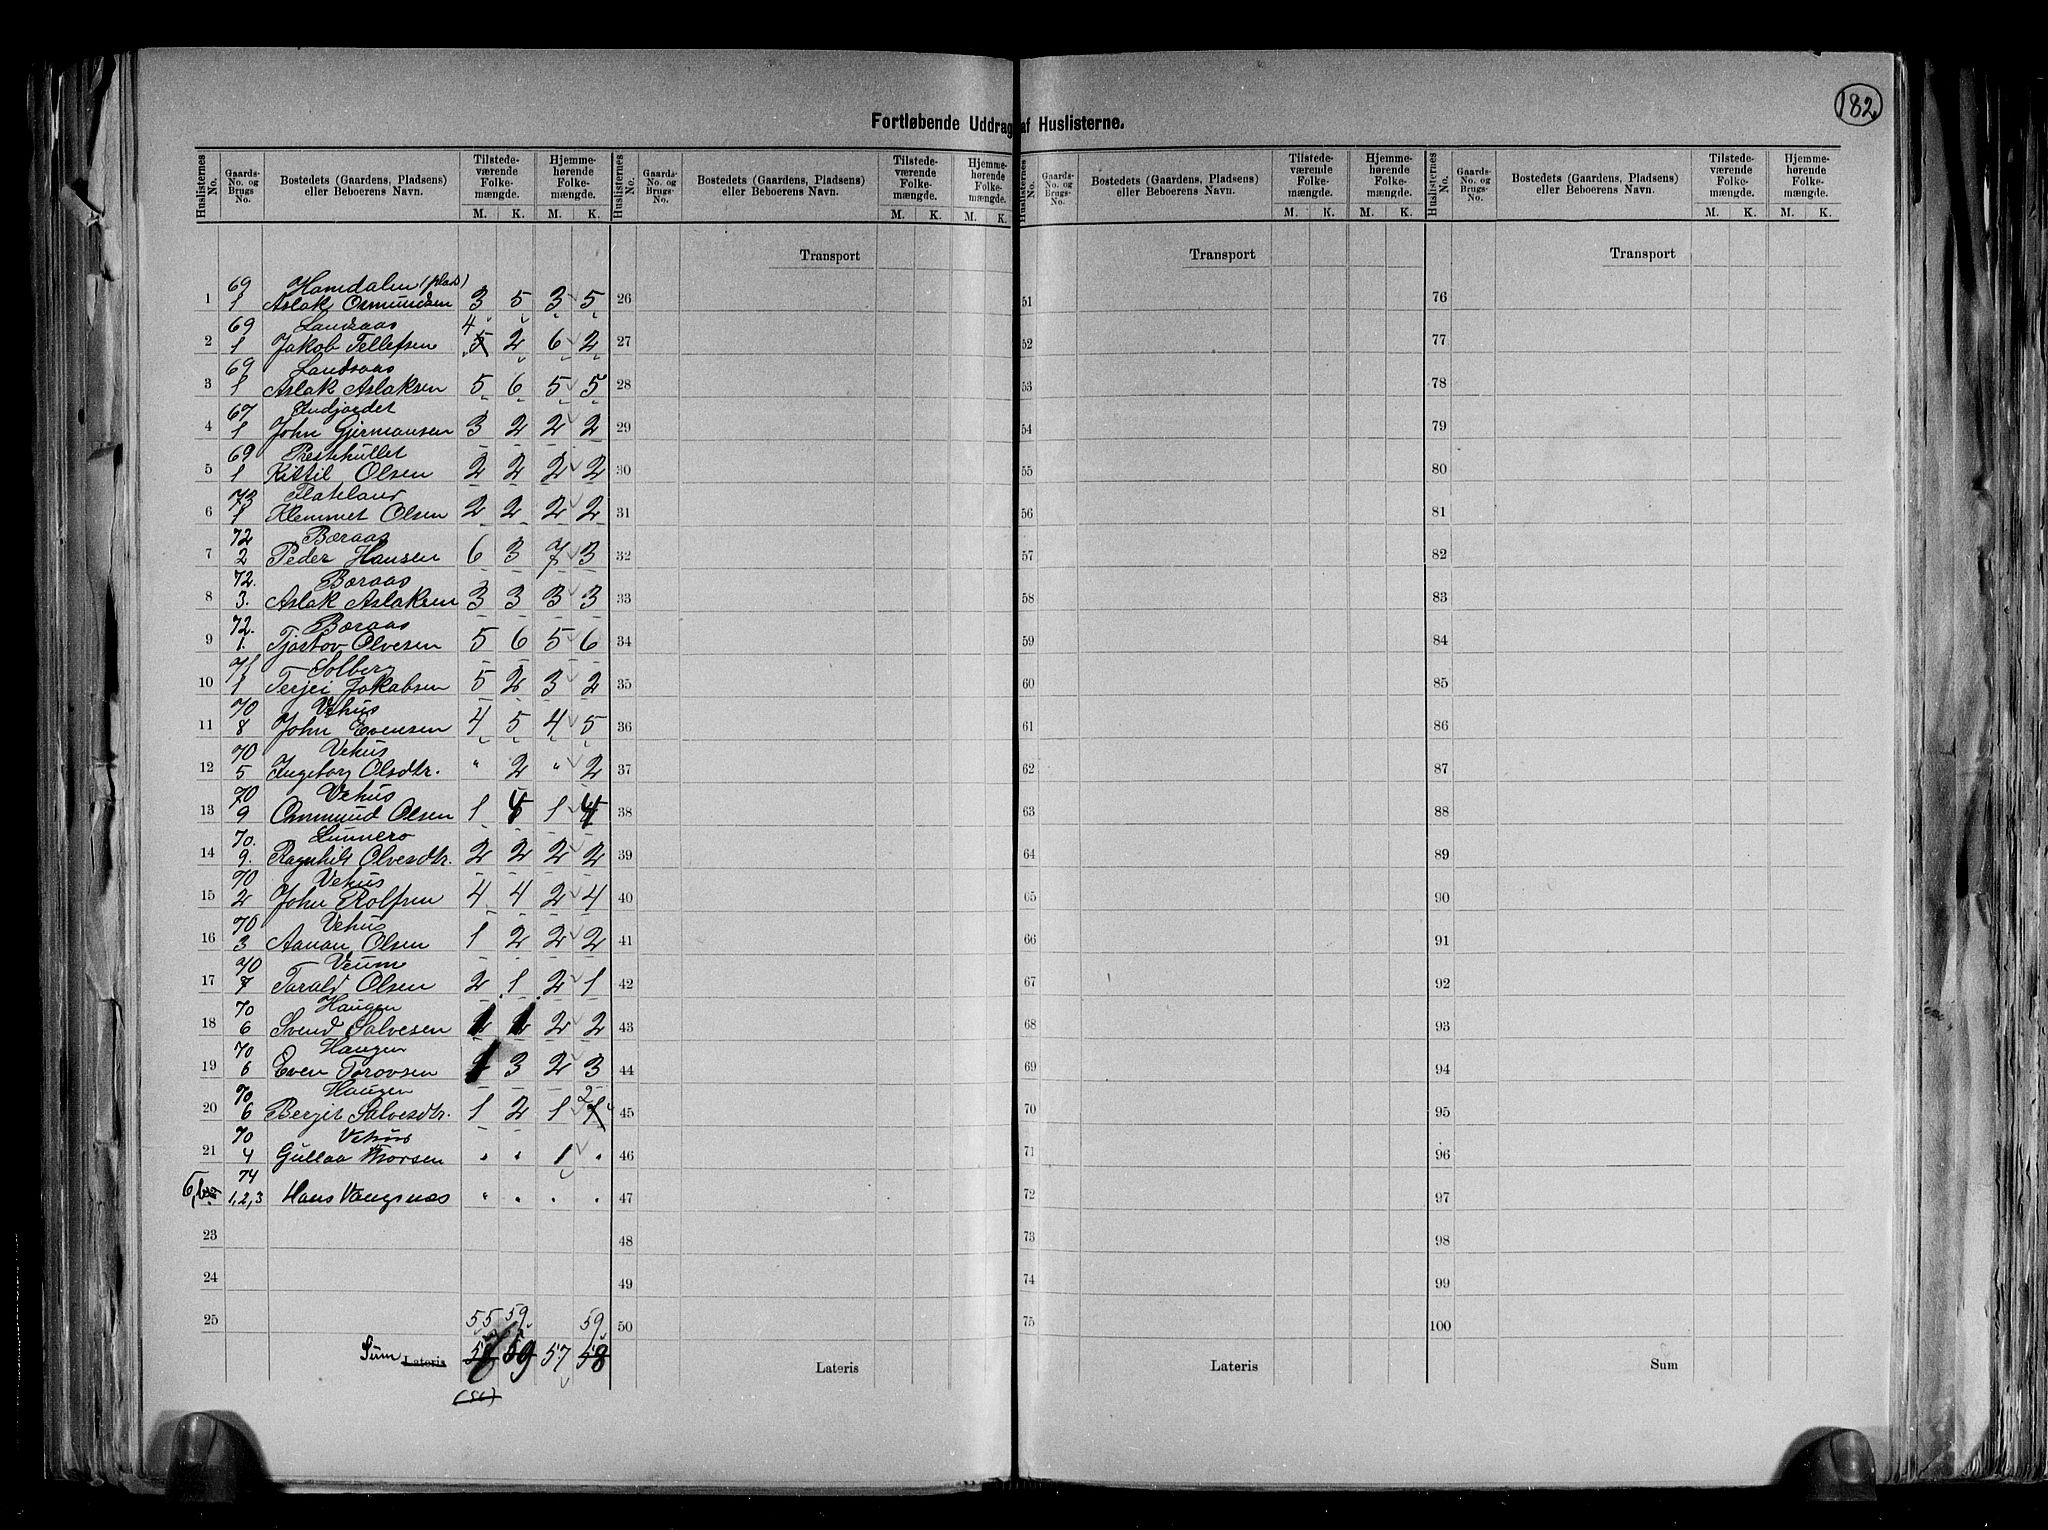 182
Fortløbende Uddrag af Huslisterne.
Huslisternes No. Gaards-No. og Brugs No. Bostedets (Gaardens, Pladsens) eller Beboerens Navn. Tilstede-værende Folke-mængde. M. K. Hjemme-hørende Folke-mængde. M. K.
Huslisternes No. Gaards-No. og Brugs-No. Bostedets (Gaardens, Pladsens) eller Beboerens Navn. Tilstede-værende Folke-mængde. M. K. Hjemme-hørende Folke-mængde. M. K.
Huslisternes No. Gaards-No. og Brugs-No. Bostedets (Gaardens, Pladsens) eller Beboerens Navn. Tilstede-værende Folke-mængde. M. K. Hjemme-hørende Folke-mængde. M. K.
Huslisternes No. Gaards-No. og Brugs-No. Bostedets (Gaardens, Pladsens) eller Beboerens Navn. Tilstede-værende Folke-mængde. M. K. Hjemme-hørende Folke-mængde. M. K.
Transport Transport Transport
69 Hamdalen (plads)
1 1 Aslak Osmundsen 3 5 3 5 26 51 76
69 Landsaas 4
2 1 Jakob Tellefsen 5 2 6 2 27 52 77
69 Landsaas
3 1 Aslak Aslaksen 5 6 5 5 28 53 78
67 Indjordet
4 1 John Gjermunsen 3 2 2 2 29 54 79
69 Præstehullet
5 1 Kittil Olsen 2 2 2 2 30 55 80
73 Flateland
6 1 Klemmet Olsen 2 2 2 2 31 56 81
72 Bæraas
7 2 Peder Hansen 6 3 7 3 32 57 82
72. Bæraas
8 3. Aslak Aslaksen 3 3 3 3 33 58 83
72. Bæraas
9 1. Tjøstov Olvesen 5 6 5 6 34 59 84
71 Solberg
10 1 Terjei Jakobsen 5 2 3 2 35 60 85
70 Vehus
11 8 John Evensen 4 5 4 5 36 61 86
70 Vehus
12 5 Ingeborg Olsdtr. " 2 " 2 37 62 87
70 Vehus
13 9 Ommund Olsen 1 4 1 4 38 63 88
70. Lunnero
14 9. Ragnhild Olvesdtr. 2 2 2 2 39 64 89
70 Vehus
15 2 John Rolfsen 4 4 2 4 40 65 90
70 Vehus
16 3 Aanan Olsen 1 2 2 2 41 66 91
70 Veum
17 7 Tarald Olsen 2 1 2 1 42 67 92
70 Haugen
18 6 Svend Salvesen 1 1 2 2 43 68 93
70 Haugen
19 6 Even Torovsen 1 3 2 3 44 69 94
70 Haugen 2
20 6 Bergit Salvesdtr. 1 2 1 1 45 70 95
70 Vehus
21 4 Gullaa Thorsen " " 1 " 46 71 96
74
1,2,3 Hans Vangsnæs " " " " 47 72 97
23 48 73 98
24 49 74 99
55 59 59
25 50 75 100
Sum Lateris 59 57 58 Lateris Lateris Sum
(56)